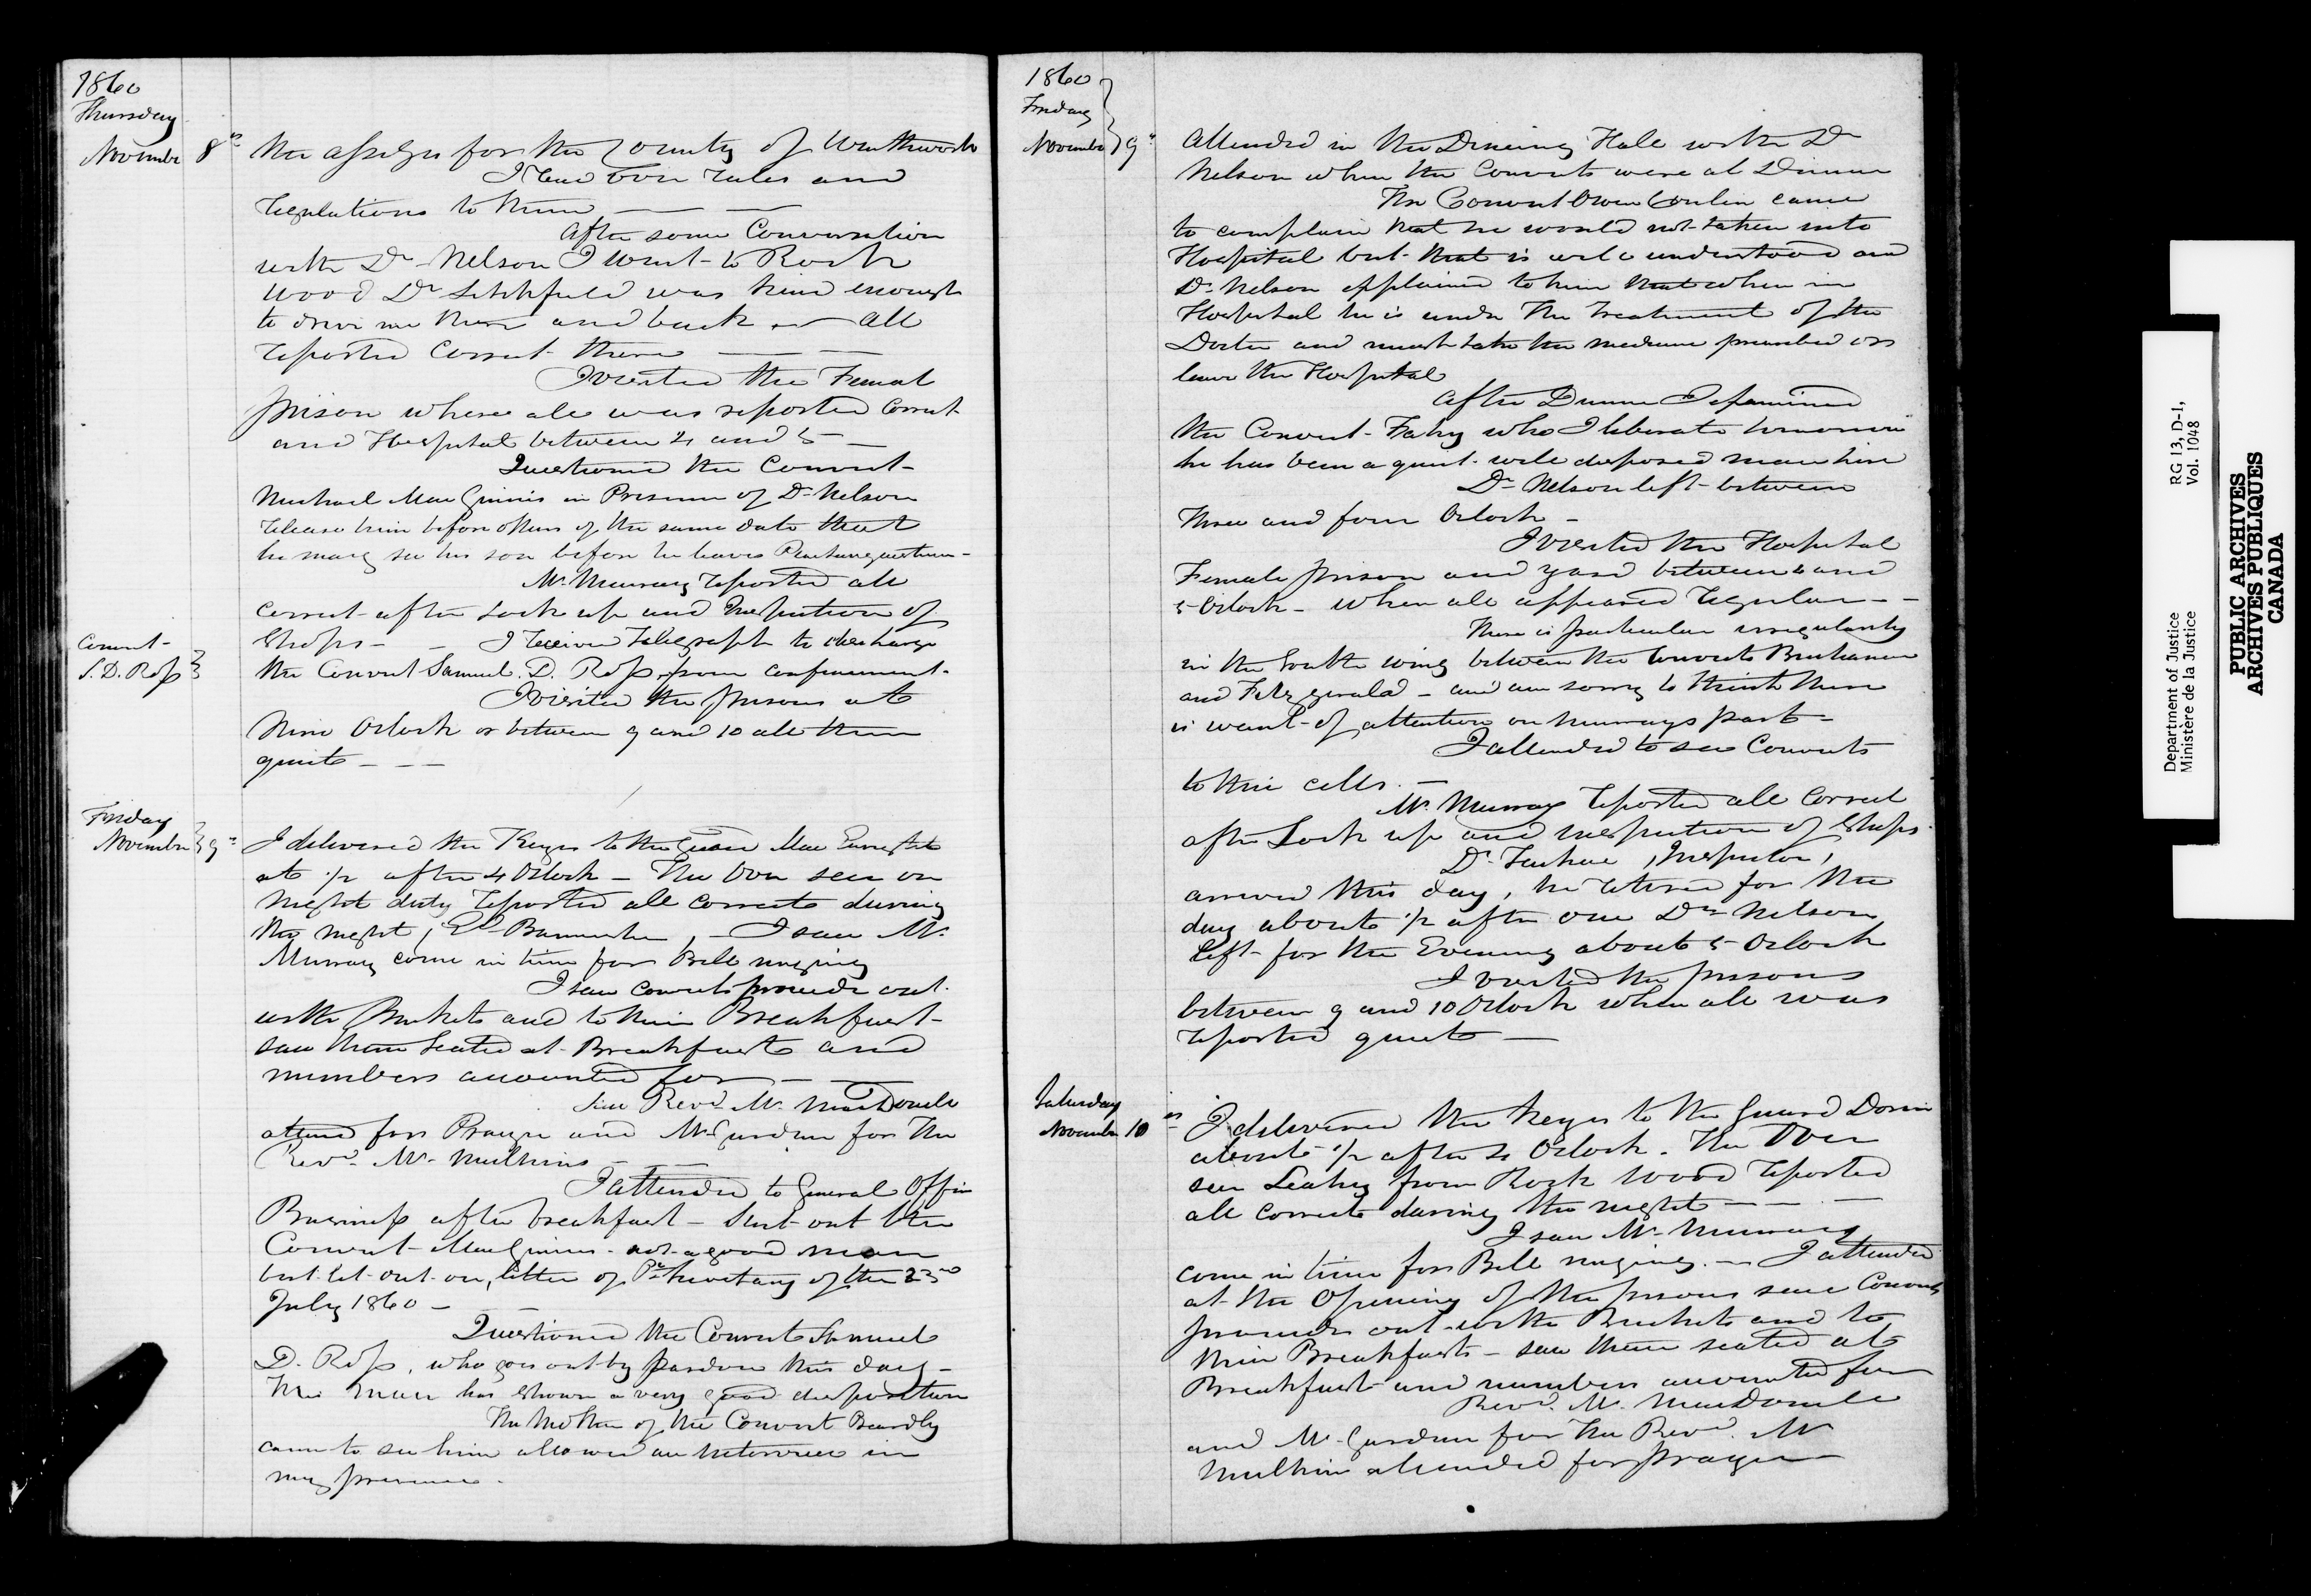 1860
Thursday
November 8th
the assizes for the County of Wentworth
I read over rules and
regulations to them
After some Conversation
with Dr Nelson I went to Rock
wood Dr Litchfield was kind enough
to drive me there and back All
reported correct there
I visited the Female
prison where all was reported correct
and Hospital between 4 and 5
Questioned the Convict
Michael MacGinnis in Presence of Dr Nelson
release him before others of the same date that
he may see his son before he leaves Penetanguishene
Mr Murray reported all
correct after Lock up and Inspection of
Shops - I received Telegraph to discharge
Convict
S. D. Ross
the Convict Samuel D. Ross from confinement.
I visited the prisons at
Nine Oclock or between 9 and 10 all then
quiet
Friday
November 9th
I delivered the Keys to the Guard
at 1/2 after 4 Oclock - The Over seer on
Night duty reported all correct during
the night, - I saw Mr
Murray come in time for Bell ringing
I saw convicts proceed out
with Buckets and to their Breakfast
saw them seated at Breakfast and
numbers accounted for
Saw Revd Mr MacDonell
attend for Prayer and Mr Gardiner for The
Revd Mr Mulkins
I attended to General Office
Business after breakfast - Sent out the
Convict MacGinnis - not a good man
but let out on letter of Secretary of the 23rd
July 1860
Questioned the Convict Samuel
D. Ross, who goes out by pardon this day -
This man has shown a very good disposition
The Mother of the Convict
came to see him allowed an interview in
my presence.
1860
Friday
November 9th
Attended in the Dining Hall with Dr
Nelson when the Convicts were at Dinner
The Convict Owen Conlin came
to complain that he would not taken into
Hospital but that is well understood and
Dr Nelson explained to him that when in
Hospital he is under The Treatment of the
Doctor and must take the medicine prescribed or
leave the Hospital
After Dinner I examined
the Convict Fahy who I liberate tomorrow
he has been a quiet well disposed man here
Dr Nelson left between
Three and four Oclock
I visited the Hospital
Female prison and yard between 4 and
5 Oclock - when all appeared regular
There is particular irregularity
in the South wing between the Convicts Buchanan
and Fitzgerald - and am sorry to think there
is want of attention on Murrays part
I attended to see Convicts
to their cells.
Mr Murray reported all correct
after Lock up and inspection of Shops.
Dr Taché, Inspector,
arrived this day, he retired for the
day about 1/2 after one Dr Nelson
left for the Evening about 5 Oclock
I visited the prisons
between 9 and 10 Oclock when all was
reported quiet
Saturday
November 10th
I delivered the keys to the Guard
about 1/2 after 4 Oclock. The Over
seer Leahy from Rock Wood reported
all correct during the night
I saw Mr Murray
come in time for Bell ringing. I attended
at the Opening of the prisons saw Convicts
proceed out with Buckets and to
their Breakfasts - saw them seated at
Breakfast and numbers accounted for
Revd Mr MacDonell
and Mr Gardiner for The Revd Mr
Mulkins attended for prayer
Department of Justice
Ministère de la Justice
RG 13, D-1,
Vol. 1048
PUBLIC ARCHIVES
ARCHIVES PUBLIQUES
CANADA